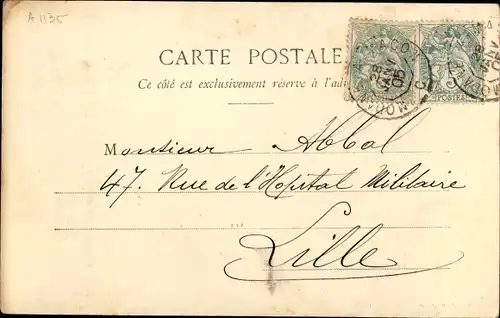 A 1135
CARTE POSTALE
Ce côté est exclusivement réservé à l'adr
POSTES
MACON
28
JANV
05
Monsieur Abbal
47. Rue de l'Hopital Militaire
Lille